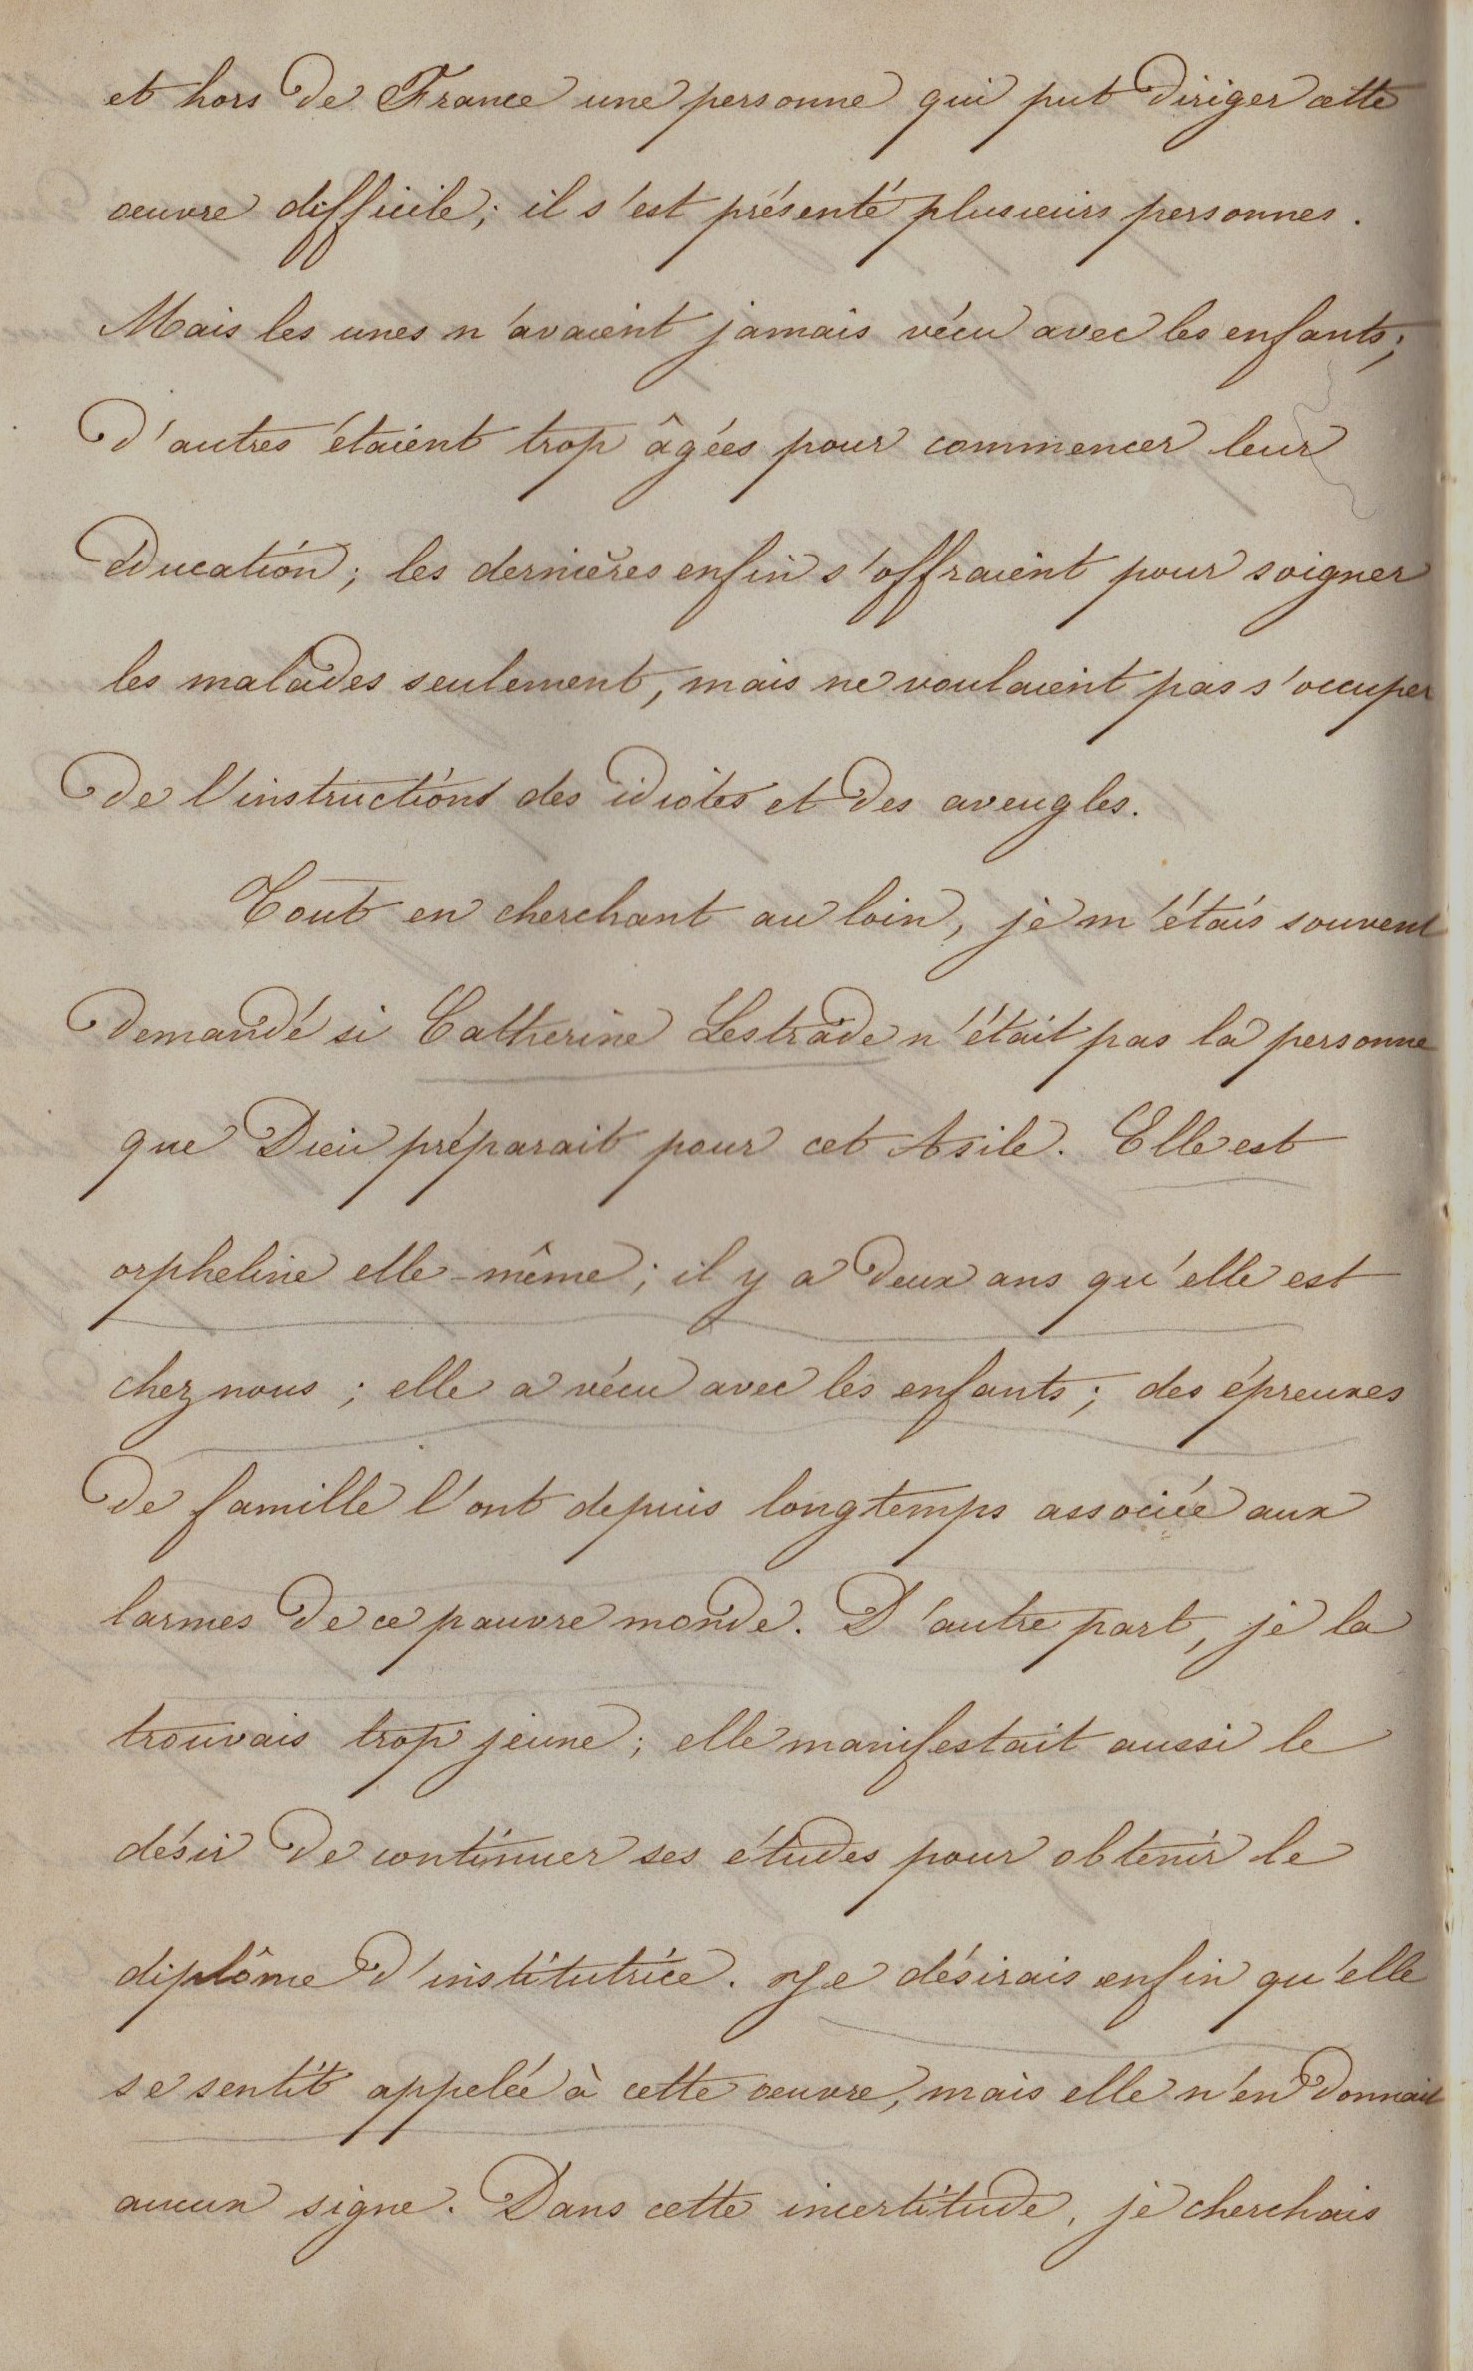 et hors de France une personne qui put diriger cette
œuvre difficile; il s'est présenté plusieurs personnes.
Mais les unes n'avaient jamais vécu avec les enfants;
d'autres étaient trop âgées pour commencer leur
éducation; les dernières enfin s'offraient pour soigner
les malades seulement, mais ne voulaient pas s'occuper
de l'instruction des idiotes et des aveugles.
Tout en cherchant au loin, je m'étais souvent
demandé si Catherine Lestrade n'était pas la personne
que Dieu préparait pour cet Asile. Elle est
orpheline elle-même; il y a deux ans qu'elle est
chez nous; elle a vécu avec les enfants; des épreuves
de famille l'ont depuis longtemps associée aux
larmes de ce pauvre monde. D'autre part, je la
trouvais trop jeune; elle manifestait aussi le
désir de continuer ses études pour obtenir le
diplôme d'institutrice. Je désirais enfin qu'elle
se sentît appelée à cette œuvre, mais elle n'en donnait
aucun signe. Dans cette incertitude, je cherchais